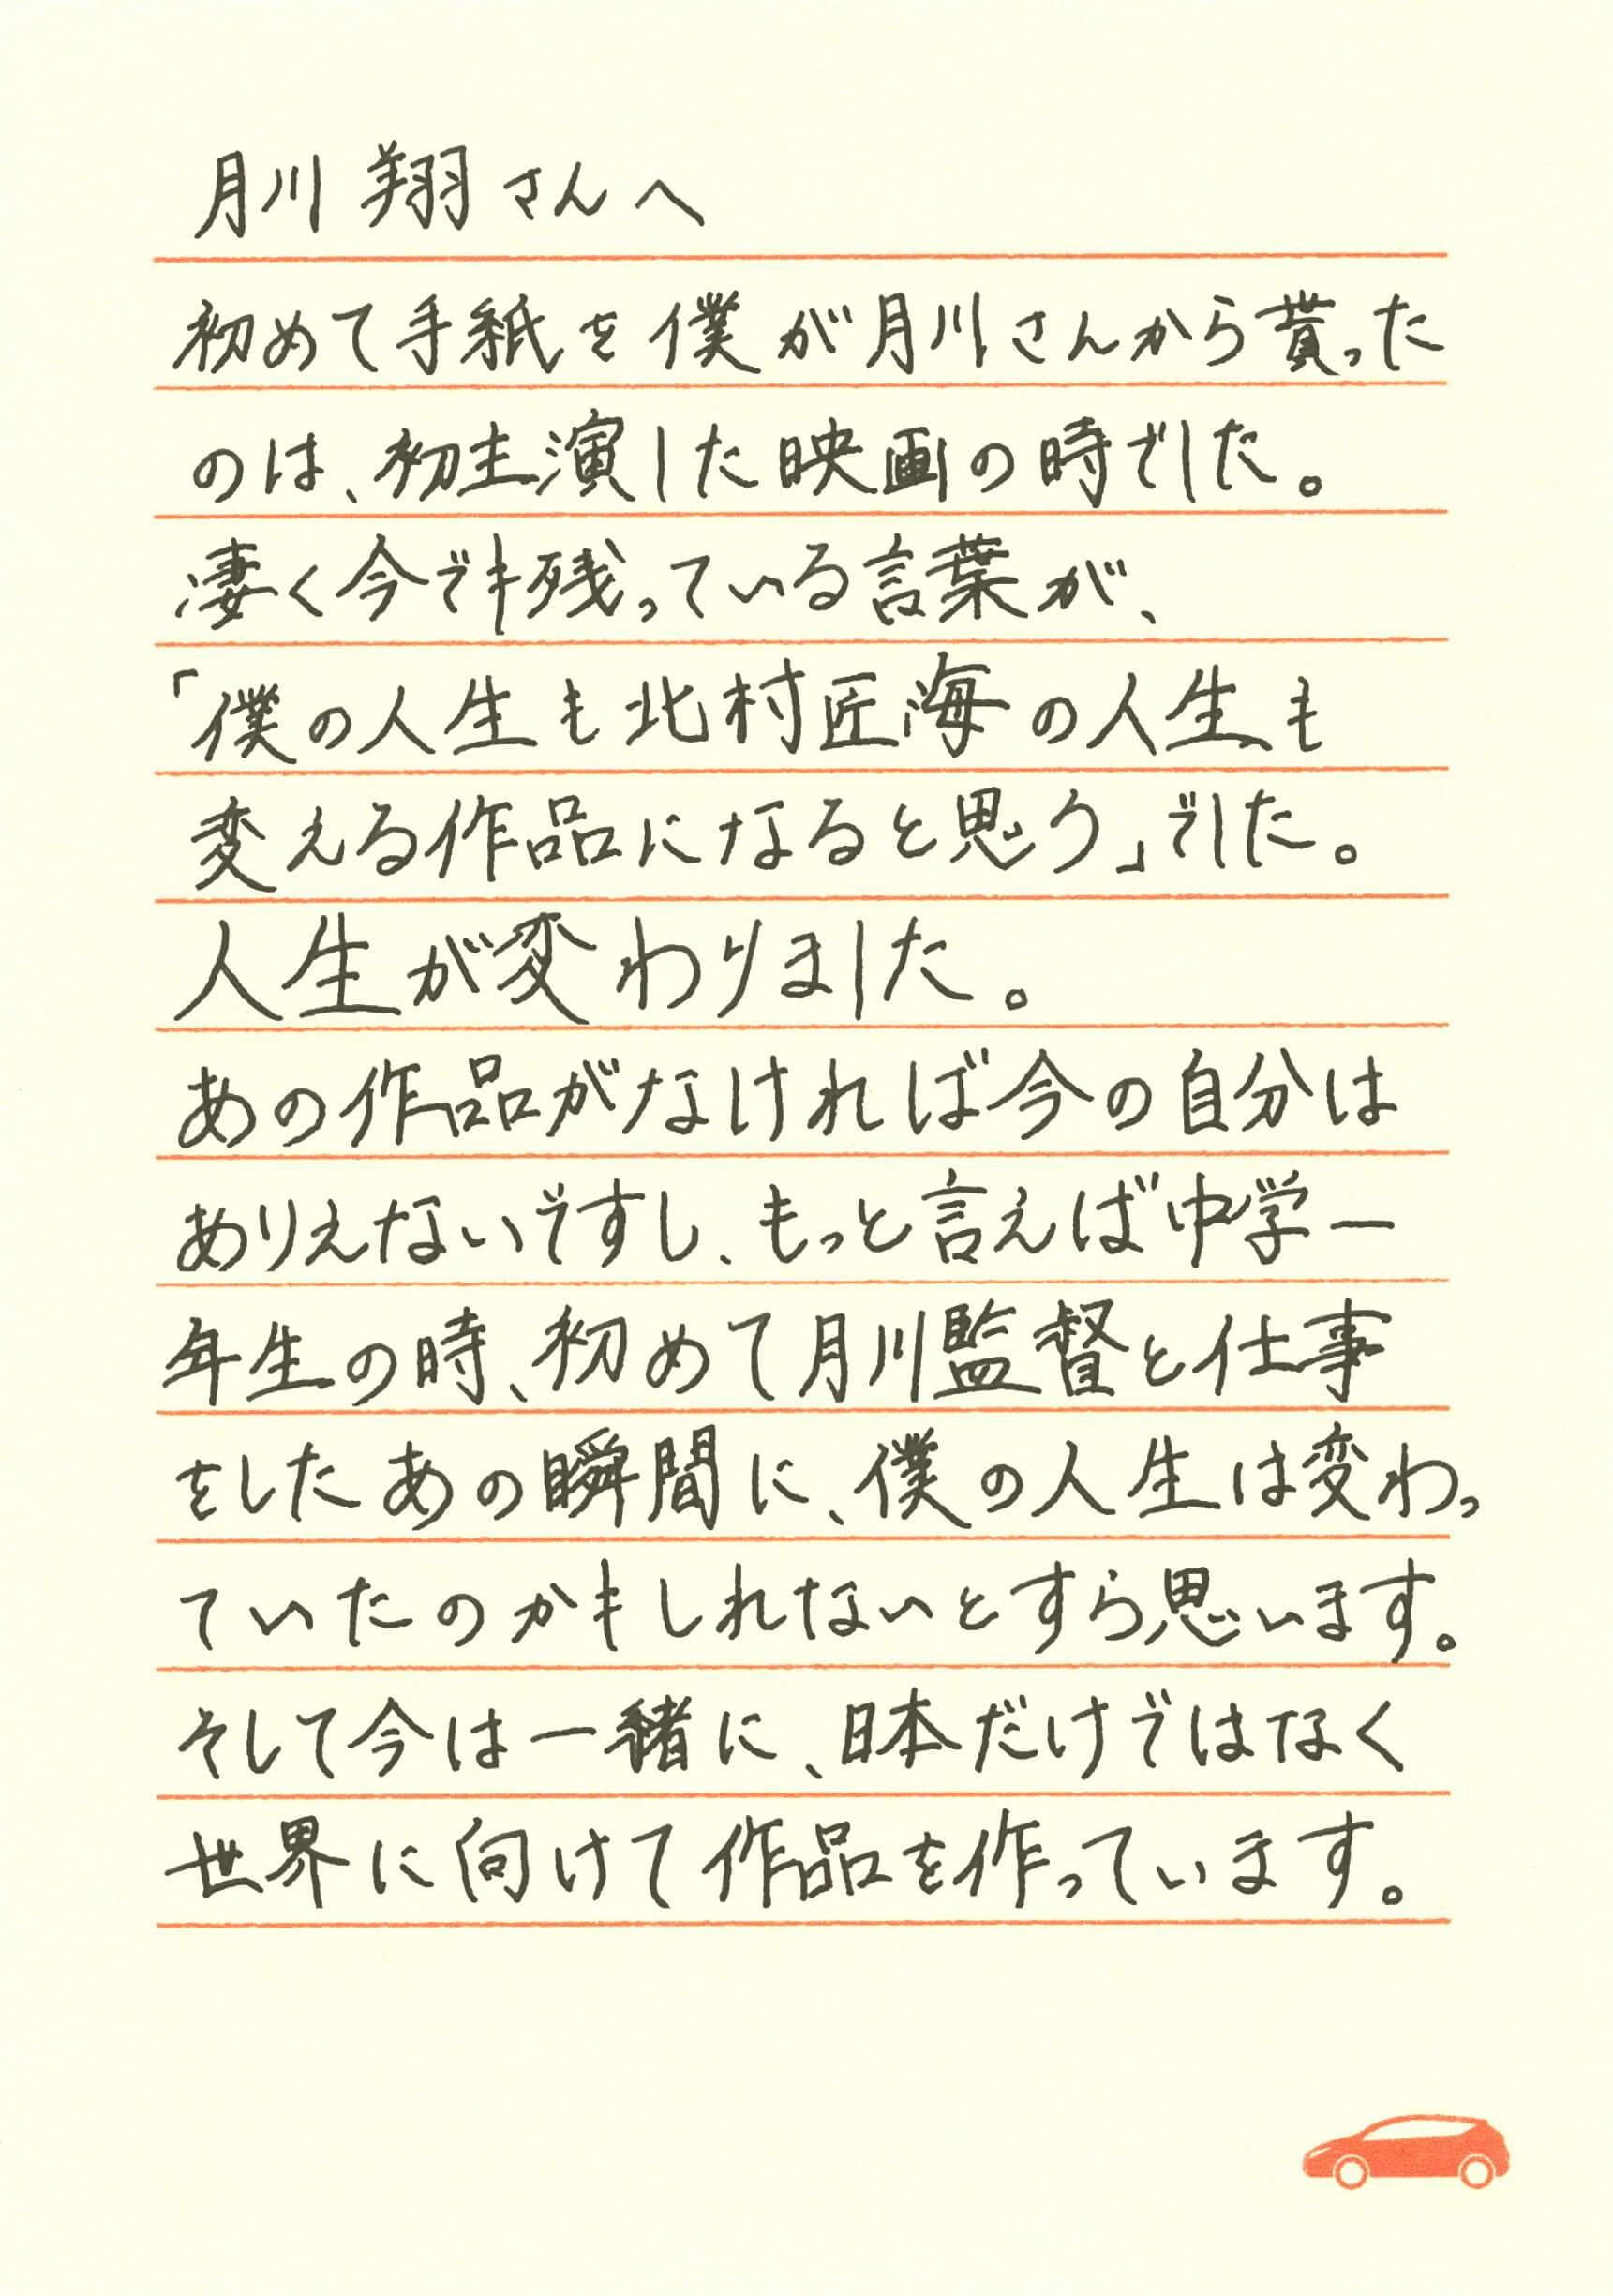 月川 翔さんへ
初めて手紙を僕が月川さんから貰った
のは、初主演した映画の時でした。
凄く今でも残っている言葉が、
「僕の人生も北村匠海の人生も
変える作品になると思う」でした。
人生が変わりました。
あの作品がなければ今の自分は
ありえないですし、もっと言えば中学一
年生の時、初めて月川監督と仕事
をしたあの瞬間に、僕の人生は変わっ
ていたのかもしれないとすら思います。
そして今は一緒に、日本だけではなく
世界に向けて作品を作っています。